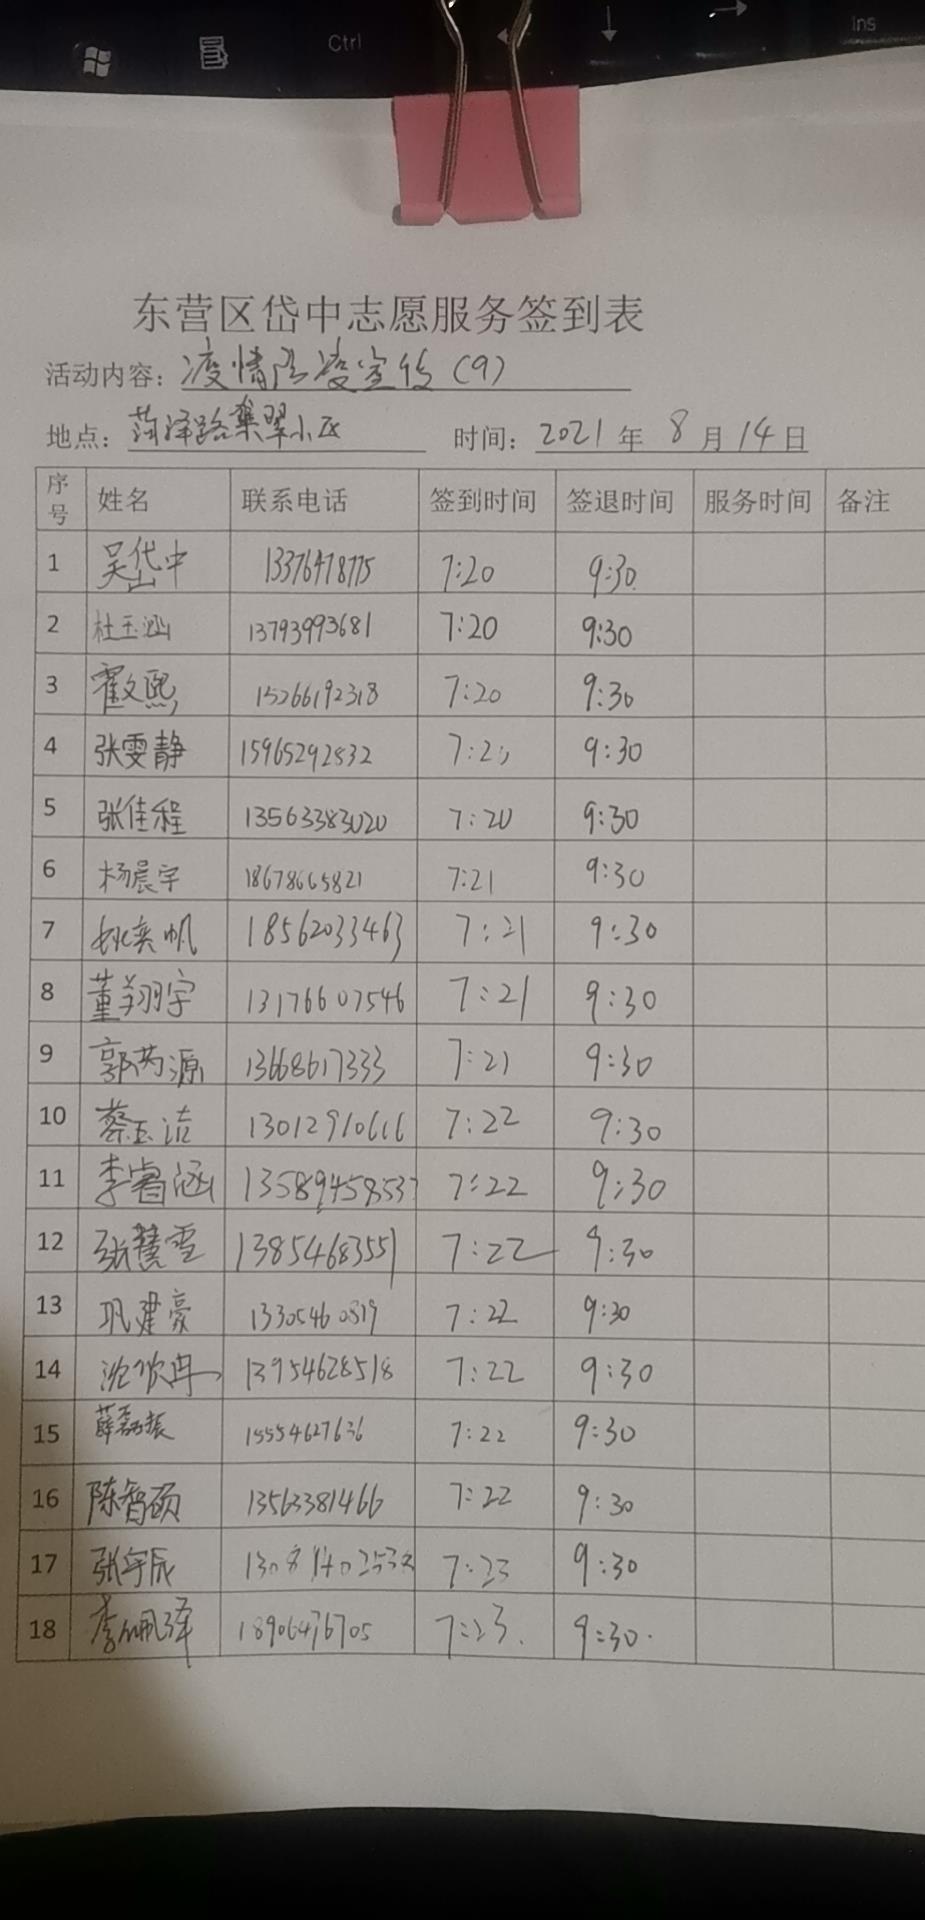 Ctrl
Ins
东营区岱中志愿服务签到表
活动内容: 疫情防疫宣传(9)
地点: 菏泽路集翠小区 时间: 2021年 8月14日
序号 姓名 联系电话 签到时间 签退时间 服务时间 备注
1 吴岱中 13376478775 7:20 9:30
2 杜玉涵 13793993681 7:20 9:30
3 霍文熙 15266192318 7:20 9:30
4 张雯静 15965292832 7:20 9:30
5 张佳程 13563383020 7:20 9:30
6 杨晨宇 18678665821 7:21 9:30
7 姚奕帆 18562033463 7:21 9:30
8 董翔宇 13176607546 7:21 9:30
9 郭芮源 13668617333 7:21 9:30
10 蔡玉洁 13012910616 7:22 9:30
11 李睿涵 13589458537 7:22 9:30
12 张慧雪 13854683551 7:22 9:30
13 巩建豪 13305460819 7:22 9:30
14 沈欣冉 13954628518 7:22 9:30
15 15554627636 7:22 9:30
16 陈智硕 13563381466 7:22 9:30
17 张宇辰 7:23 9:30
18 李佩泽 18906476705 7:23. 9:30.